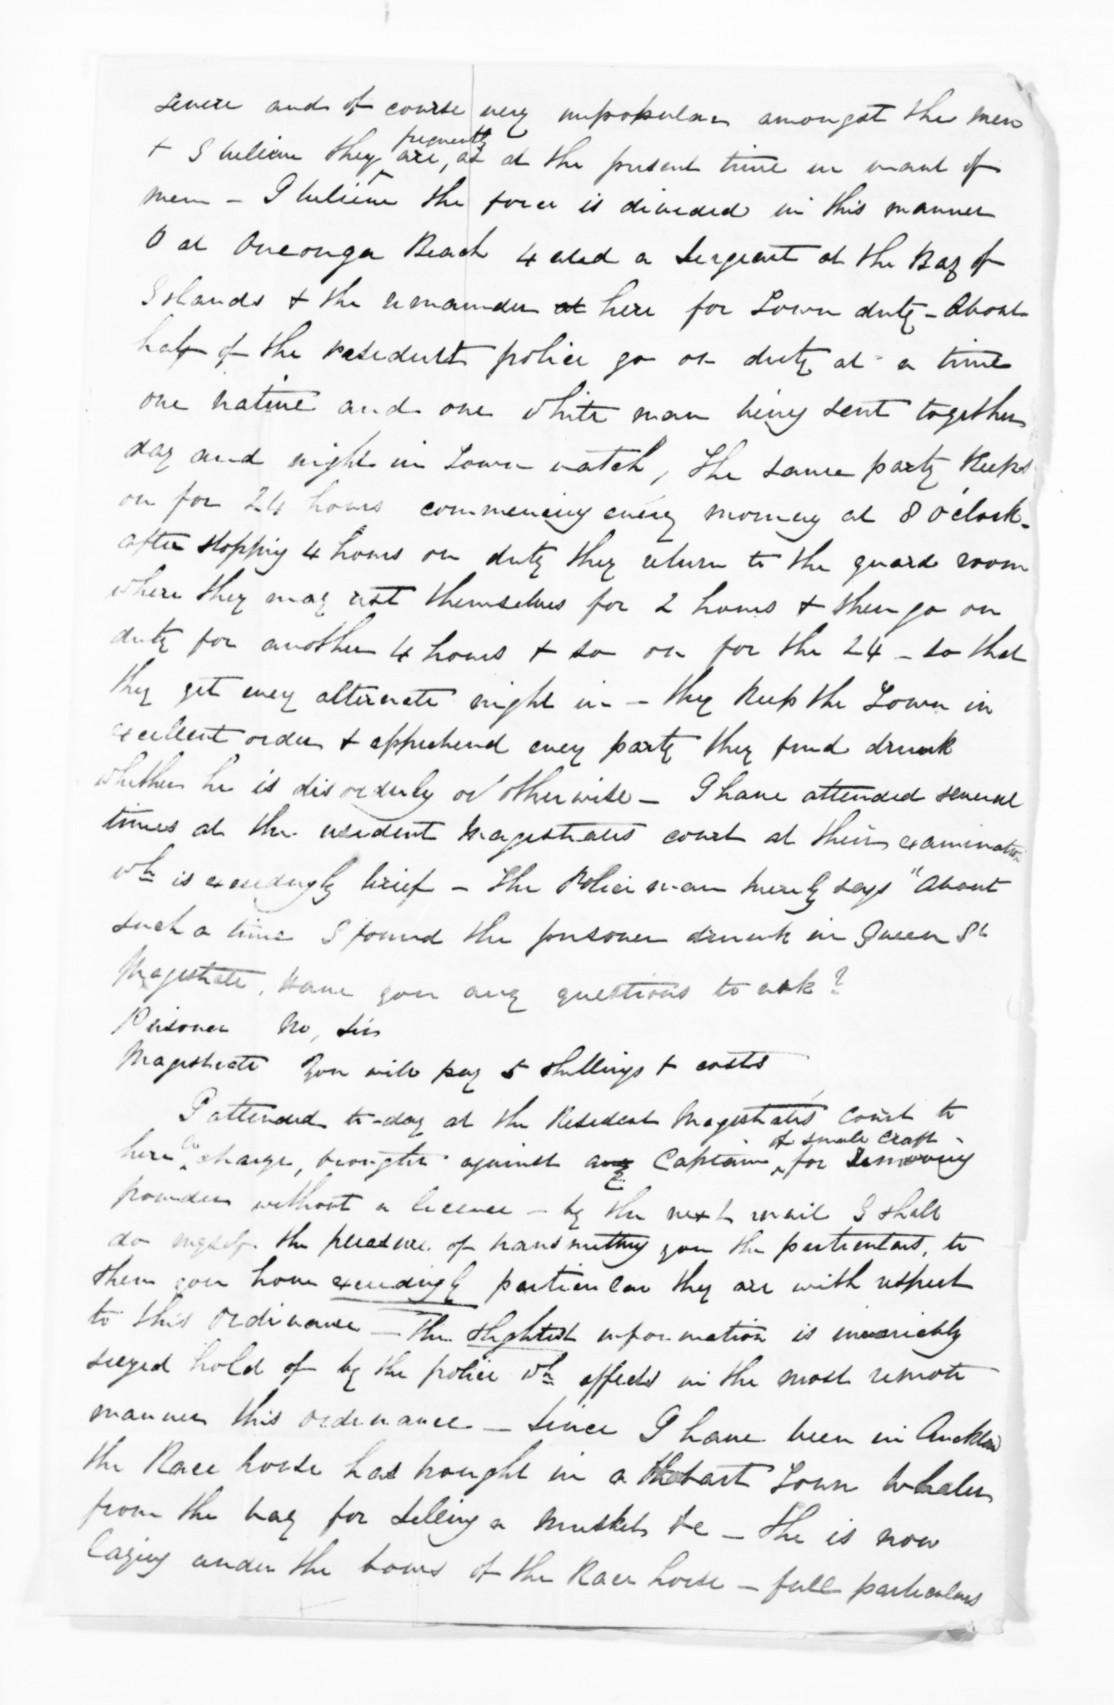 severe and of course very unpopular amongst the men
frequently
& I believe they are, as at the present time in want of
men - I believe the force is divided in this manner
at Oneonga Beach 4 and a Sergeant at the Bay of
Islands & the remainder at here for Town duty - About
half of the resident police go on duty at a time
one native and one white man being sent together
day and night in Town watch, The same party keeps
on for 24 hours commencing every morning at 8 o'clock -
after stopping 4 hours on duty they return to the guard room
where they may rest themselves for 2 hours & then go on
duty for another 4 hours & so on for the 24 - so that
they get every alternate night in - they keep the Town in
excellent order & apprehend every party they find drunk
whether he is disorderly or otherwise - I have attended several
times at the resident Magistrates court at their examination
wh is exceedingly brief - The Police man merely says "About
such a time I found the prisoner drunk in Queen St
Magistrate, Have you any questions to ask?
Prisoner No, Sir
Magistrate You will pay 5 shillings & costs
I attended to-day at the Resident Magistrates Court to
of small craft
hear a charge, brought against any Captain for removing
powder without a licence - by the next mail I shall
do myself the pleasure of transmitting you the particulars, to
shew you how exceedingly particular they are with respect
to this Ordinance - The slightest information is invariably
seized hold of by the police wh affects in the most remote
manner this ordinance - Since I have been in Auckland
the Race horse has brought in a Hobart Town Whaler
from the bay for selling a musket &c - She is now
laying under the bows of the Race horse - full particulars